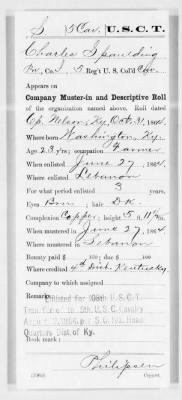 S | 5 Cav. | U.S.C.T.
Charles Spaulding
Pvt, Co. I, 5 Reg't U. S. Col'd Cav.
Appears on
Company Muster-in and Descriptive Roll
of the organization named above. Roll dated
Cp. Nelson, Ky. Oct. 31, 1864.
Where born Washington, Ky.
Age 23 y'rs; occupation Farmer
When enlisted June 27, 1864.
Where enlisted Lebanon
For what period enlisted 3 years.
Eyes Brn; hair DK.
Complexion Copper; height 5 ft. 11 in.
When mustered in June 27, 1864.
Where mustered in Lebanon
Bounty paid $ 100; due $ 100
Where credited 4th Dist. Kentucky
Company to which assigned
Remarks: Enlisted for 108th U.S.C.T.
Transferred to 5th U.S.C. Cavalry
Quarters Dist. of Ky.
Book mark:
Philipsen
Copyist.